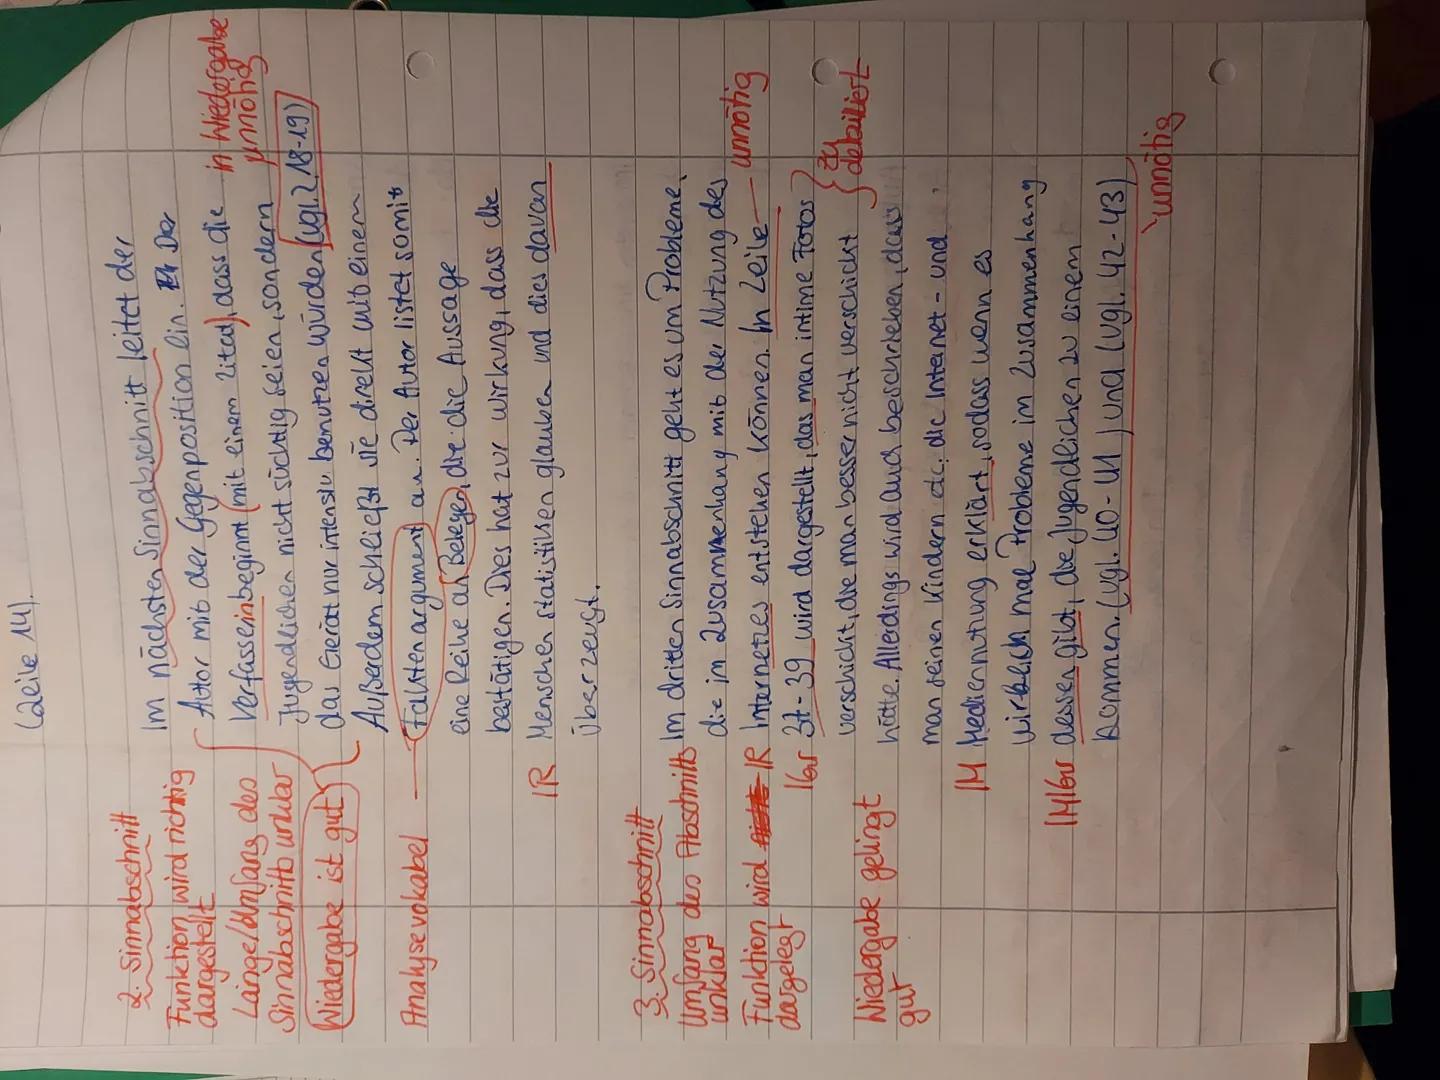 (Zeile 14).
2. Sinnabschnitt
Funktion wird richtig
dargestellt
Länge/Umfang des
Sinnabschnitts unklar
Wiedergabe ist gut
Analysevokabel
Im nächsten Sinnabschnitt leitet der
Autor mit der Gegenposition ein. Der
Verfasser beginnt (mit einem Zitat), dass die
in Wiedergabe
unnötig
Jugendlichen nicht süchtig seien, sondern
das Gerät nur intensiv benutzen würden (vgl. Z. 18-19)
Außerdem schließt sie direkt mit einem
Faktenargument an. Der Autor listet somit
eine Reihe an Belegen, die die Aussage
bestätigen. Dies hat zur Wirkung, dass die
Menschen statistitisen glauben und dies davon
IR
überzeugt.
3. Sinnabschnitt
Umfang des Abschnitts
unklar
Funktion wird
dargelegt
Wiedergabe gelingt
gut
Im dritten Sinnabschnitt geht es um Probleme,
die im Zusammenhang mit der Nutzung des
IR Internetzes entstehen können. In Zeile unnötig
37-39 wird dargestellt, das man intime Fotos
zu
detailliert
verschickt, die man besser nicht verschickt
hätte. Allerdings wird auch beschrieben, dass
man seinen Kindern etc. die Internet- und
IM Mediennutzung erklärt, sodass wenn es
wirklich mal Probleme im Zusammenhang
dessen gibt, die Jugendlichen zu einem
kommen. (vgl. 40-41) und (vgl. 42-43)
unnötig